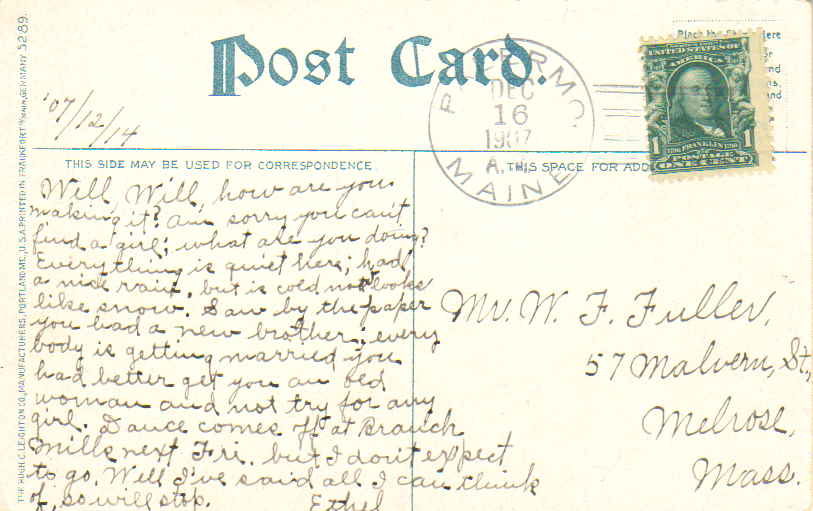 Post Card.
Place the Stamp Here
UNITED STATES OF
AMERICA
1 1706 FRANKLIN 1790 1
POSTAGE
ONE CENT
PALERMO,
DEC
16
1907
A.M.
MAINE
'07/12/14
THIS SIDE MAY BE USED FOR CORRESPONDENCE
THIS SPACE FOR ADD
Will, Will, how are you
making it? am sorry you can't
find a girl; what are you doing?
Everything is quiet here; had
a nice rain, but is cold now looks
like snow. Saw by the paper
you had a new brother; every
body is getting married you
had better get you an old
woman and not try for any
girl. Dance comes off at Branch
Mills next Fri. but I don't expect
to go. Well I've said all I can think
of, so will stop.
Ethel
Mr. W. F. Fuller,
57 Malvern, St.,
Melrose,
Mass.
THE HUGH C. LEIGHTON CO., MANUFACTURERS, PORTLAND, ME., U.S.A. PRINTED IN FRANKFORT GERMANY 5289.